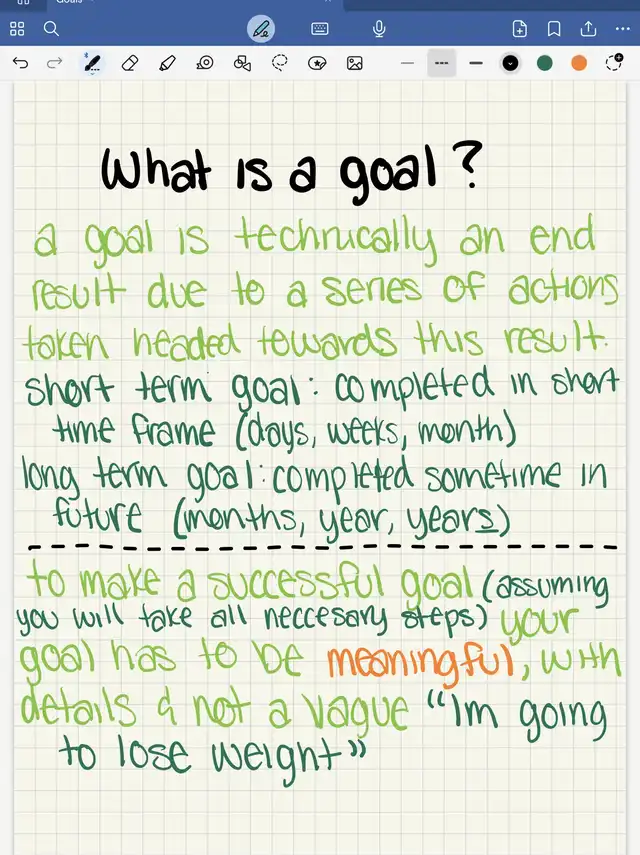 Goals
What is a goal?
a goal is technically an end
result due to a series of actions
taken headed towards this result.
short term goal: completed in short
time frame (days, weeks, month)
long term goal: completed sometime in
future (months, year, years)
to make a successful goal (assuming
you will take all neccesary steps) your
goal has to be meaningful, with
details & not a vague "Im going
to lose weight"